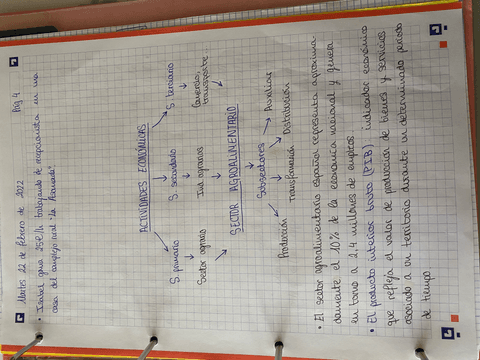 Martes 22 de febrero de 2022 Pág 4
• Isabel gana 25€/h trabajando de recepcionista en una
casa del complejo rural "La Alameda".
ACTIVIDADES ECONÓMICAS
S. primario S. secundario S. terciario
Sector agrario Ind. agrarias Comercio,
transporte
SECTOR AGROALIMENTARIO
Subsectores
Producción Transformación Distribución Auxiliar
• El sector agroalimentario español representa aproxima-
damente el 10% de la economía nacional y genera
en torno a 2,4 millones de empleos
• El producto interior bruto (PIB): indicador económico
que refleja el valor de producción de bienes y servicios
asociado a un territorio durante un determinado período
de tiempo